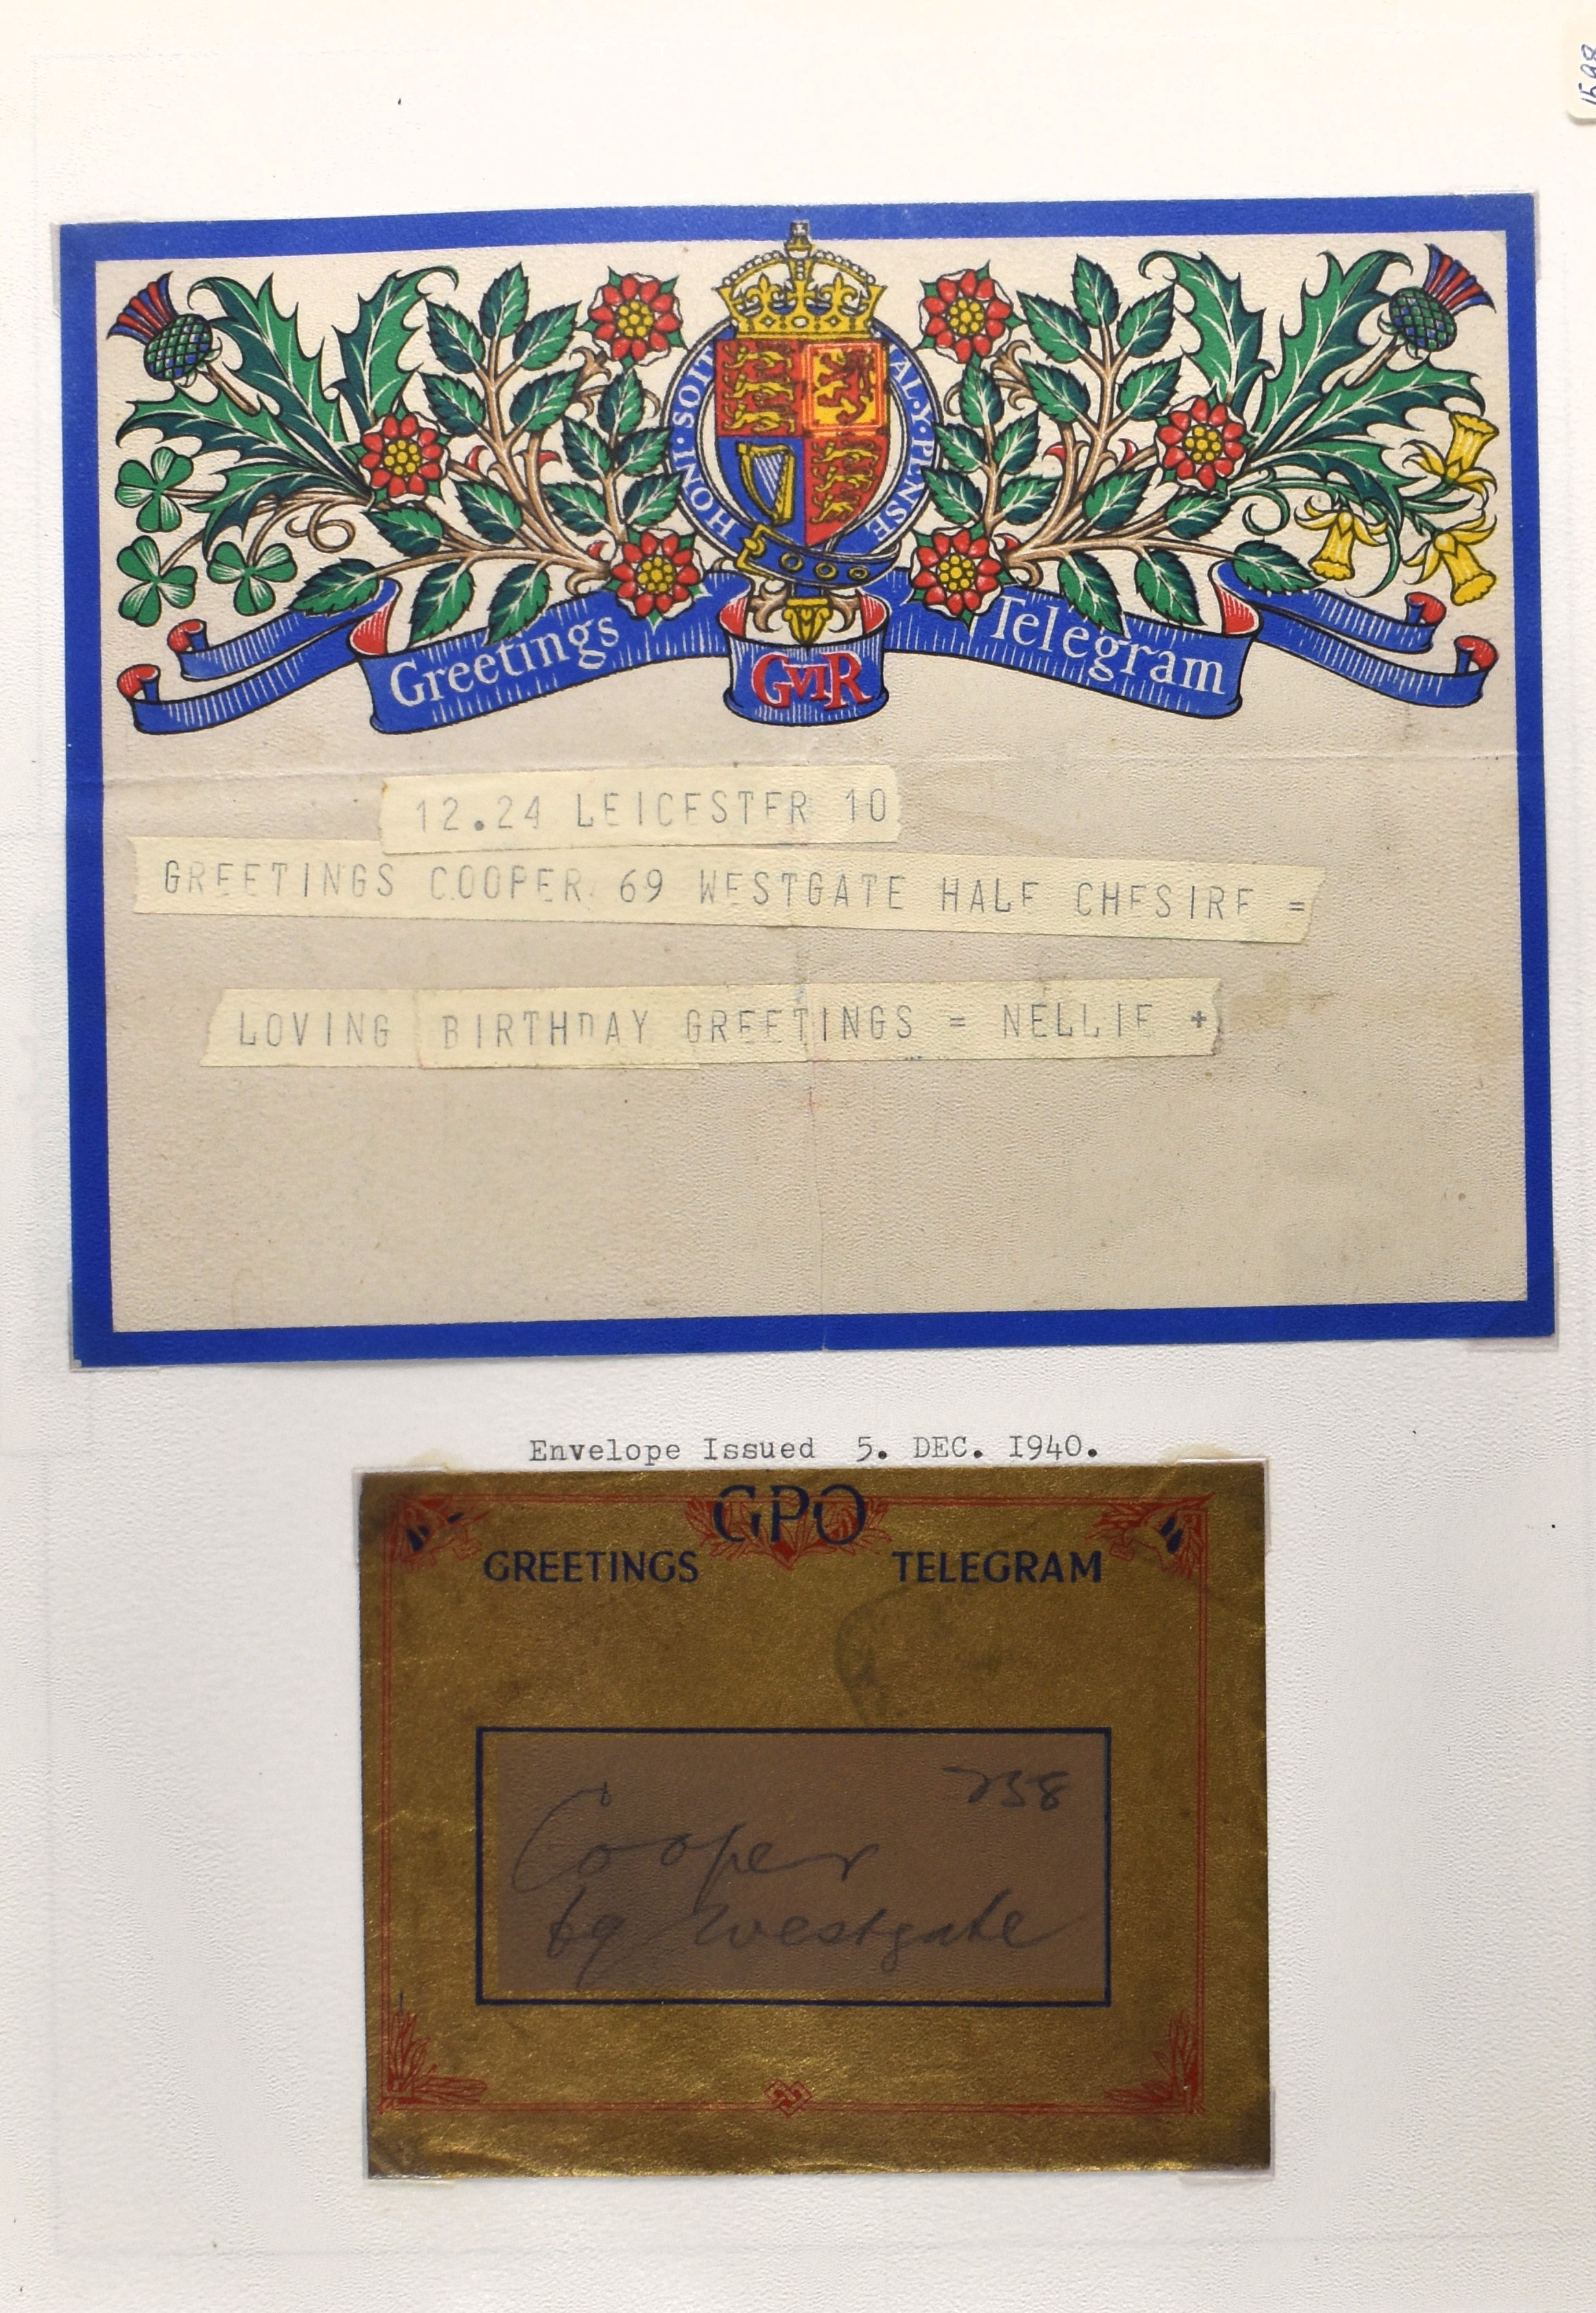 1598
HONI · SOIT AL · Y · PENSE
Greetings GVIR Telegram
12.24 LEICESTER 10
GREETINGS COOPER 69 WESTGATE HALE CHESIRE =
LOVING BIRTHDAY GREETINGS = NELLIE +
Envelope Issued 5. DEC. 1940.
GPO
GREETINGS TELEGRAM
258
Cooper
69 Westgate